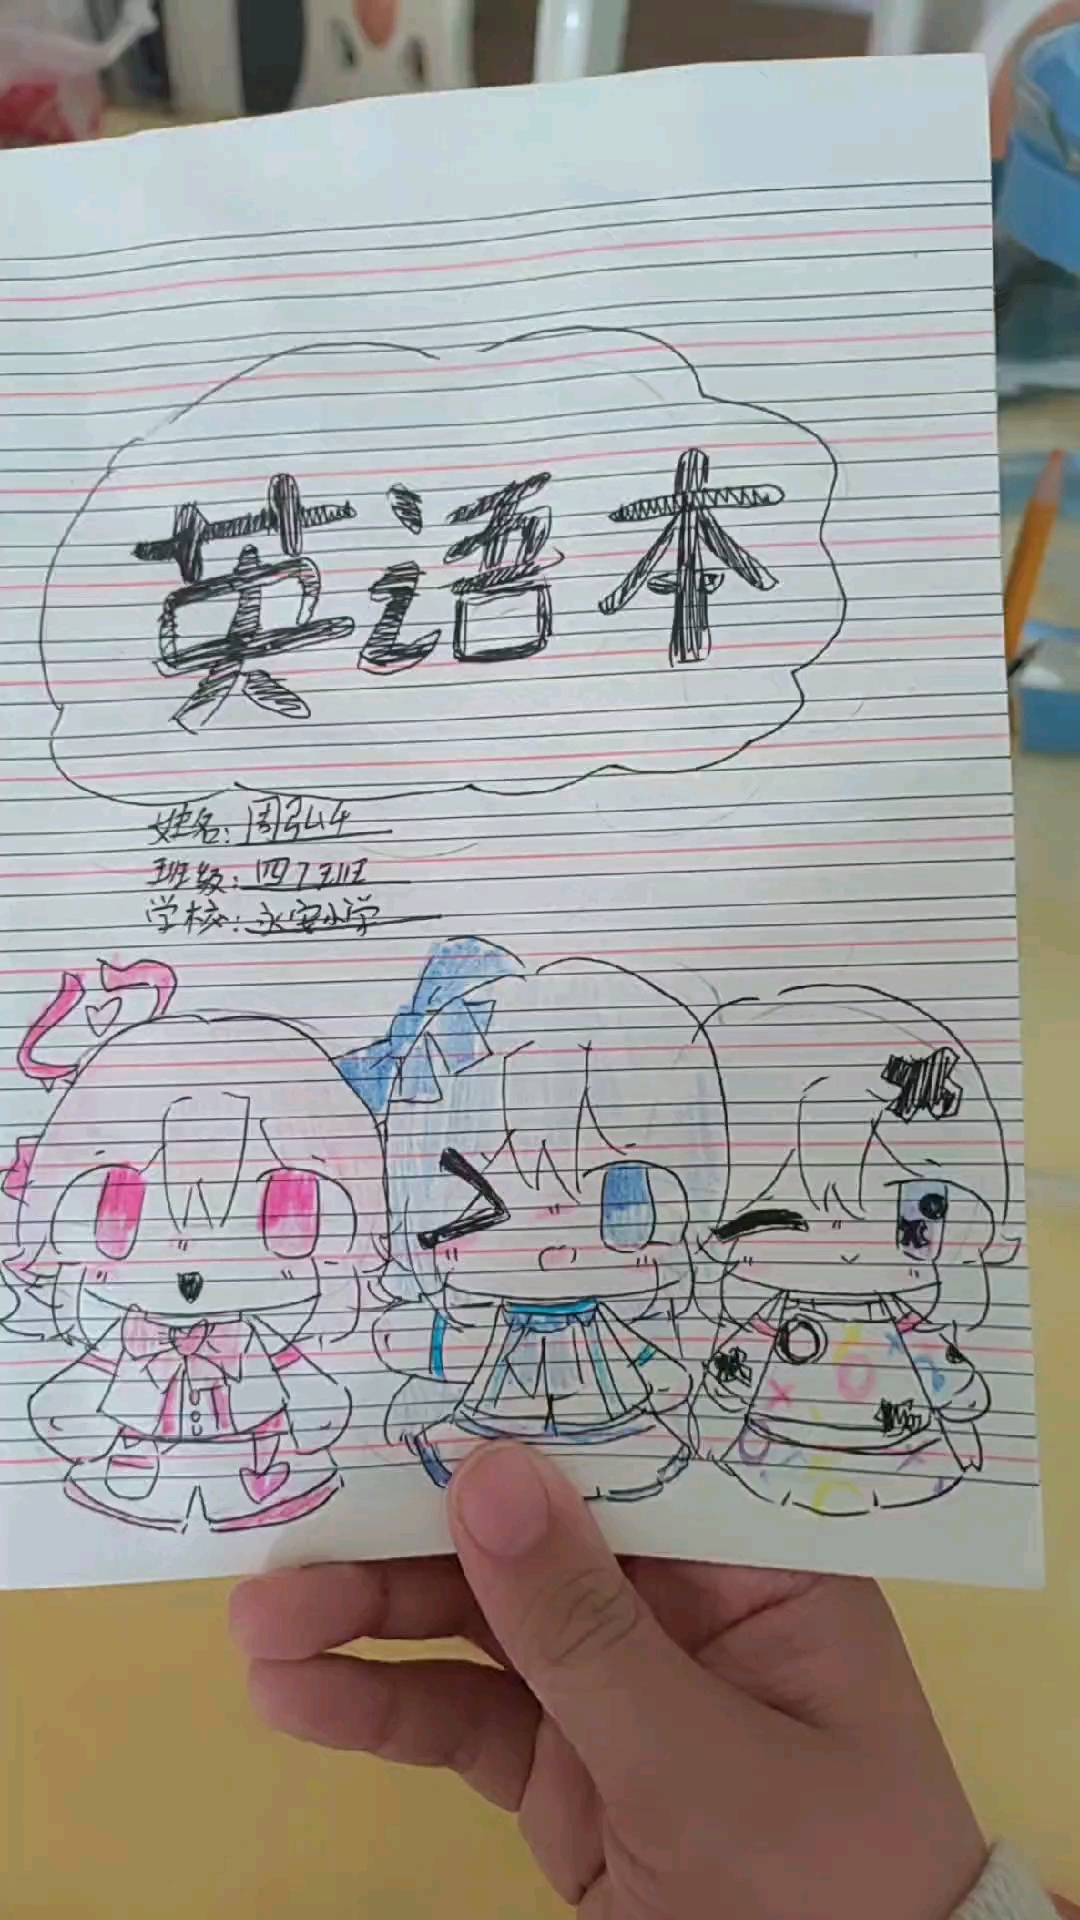 英语本
姓名：周弘午
班级：四7班
学校：永安小学